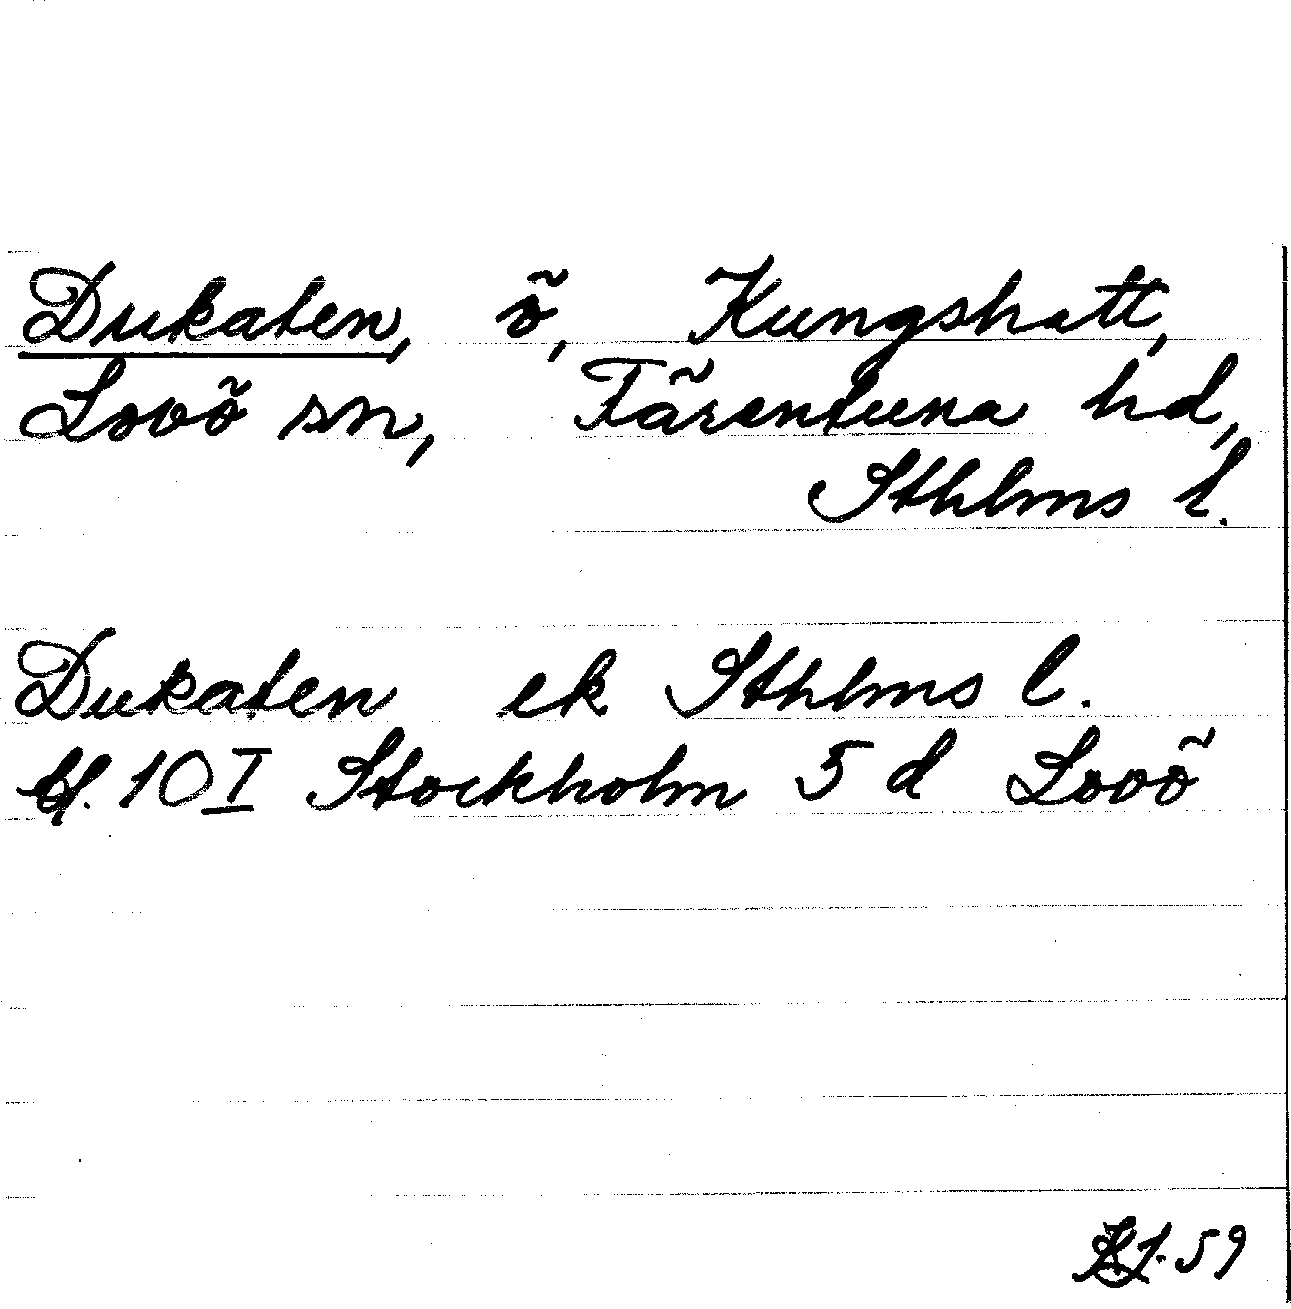 Dukaten, ö, Kungshatt,
Lovö sn, Färentuna hd,
Sthlms l.
Dukaten ek Sthlms l.
bl. 10 I Stockholm 5 d Lovö
59